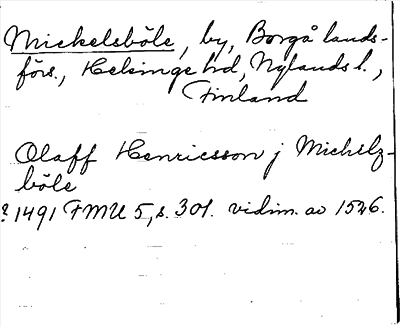 Mickelsböle, by, Borgå lands-
förs., Helsinge hd, Nylands l.,
Finland
Olaff Henricsson j Michilz-
böle
? 1491 FMU 5, s. 301. vidim. av 1526.